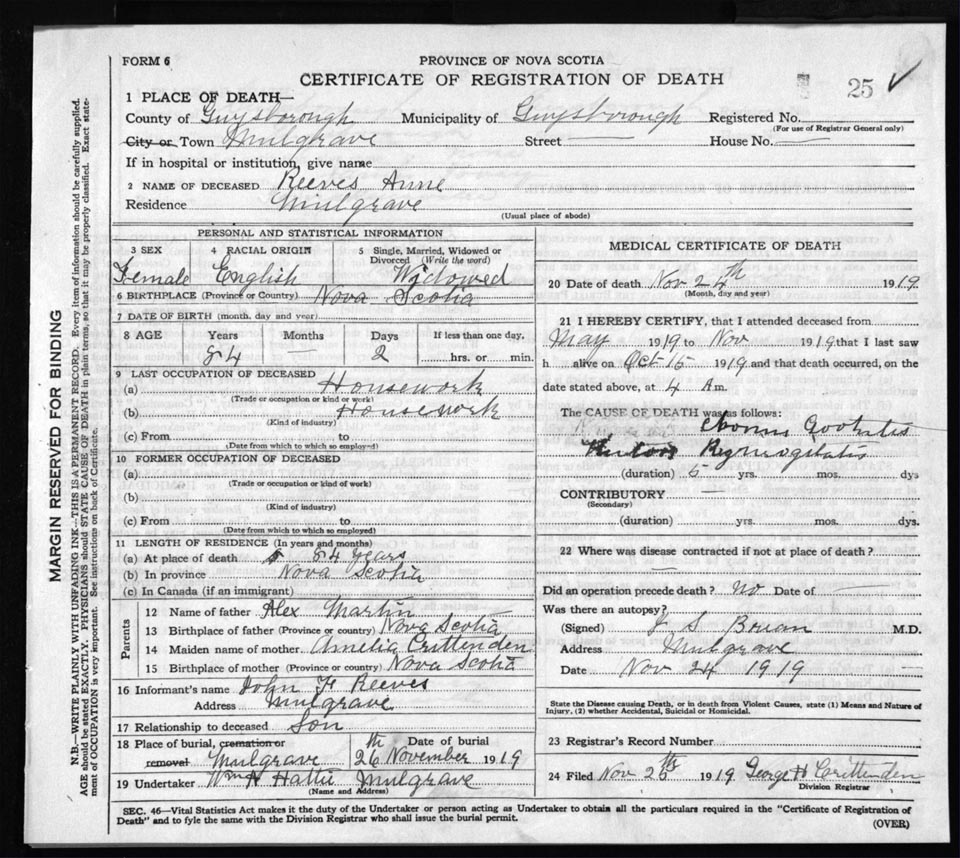 FORM 6
PROVINCE OF NOVA SCOTIA
CERTIFICATE OF REGISTRATION OF DEATH
25 ✓
1 PLACE OF DEATH—
County of Guysborough Municipality of Guysborough Registered No.
(For use of Registrar General only)
City or Town Mulgrave Street — House No. —
If in hospital or institution, give name
2 NAME OF DECEASED Reeves Anne
Residence Mulgrave
(Usual place of abode)
PERSONAL AND STATISTICAL INFORMATION
3 SEX 4 RACIAL ORIGIN 5 Single, Married, Widowed or Divorced (Write the word)
Female English Widowed
6 BIRTHPLACE (Province or Country) Nova Scotia
7 DATE OF BIRTH (month, day and year)
8 AGE Years Months Days If less than one day.
84 — 2 hrs. or min.
9 LAST OCCUPATION OF DECEASED
(a) Housework
(Trade or occupation or kind of work)
(b) Housework
(Kind of industry)
(c) From to
(Date from which to which so employed)
10 FORMER OCCUPATION OF DECEASED
(a)
(Trade or occupation or kind of work)
(b)
(Kind of industry)
(c) From to
(Date from which to which so employed)
11 LENGTH OF RESIDENCE (In years and months)
(a) At place of death 84 years
(b) In province Nova Scotia
(c) In Canada (if an immigrant)
Parents
12 Name of father Alex Martin
13 Birthplace of father (Province or country) Nova Scotia
14 Maiden name of mother Amelia Crittenden
15 Birthplace of mother (Province or country) Nova Scotia
16 Informant's name John H Reeves
Address Mulgrave
17 Relationship to deceased Son
18 Place of burial, cremation or removal Mulgrave Date of burial 26th November 1919
19 Undertaker Wm N Hattie Mulgrave
(Name and Address)
MEDICAL CERTIFICATE OF DEATH
20 Date of death Nov 24th 1919
(Month, day and year)
21 I HEREBY CERTIFY, that I attended deceased from
May 1919 to Nov 1919 that I last saw
h alive on Oct 15 1919 and that death occurred, on the
date stated above, at 4 Am.
The CAUSE OF DEATH was as follows:
(duration) 5 yrs. mos. dys
CONTRIBUTORY —
(Secondary)
(duration) yrs. mos. dys.
22 Where was disease contracted if not at place of death?
—
Did an operation precede death? No Date of —
Was there an autopsy?
(Signed) M.D.
Address Mulgrave
Date Nov 24 1919
State the Disease causing Death, or in death from Violent Causes, state (1) Means and Nature of
Injury, (2) whether Accidental, Suicidal or Homicidal.
23 Registrar's Record Number
24 Filed Nov 26th 1919 George H Crittenden
Division Registrar
SEC. 46—Vital Statistics Act makes it the duty of the Undertaker or person acting as Undertaker to obtain all the particulars required in the "Certificate of Registration of
Death" and to fyle the same with the Division Registrar who shall issue the burial permit.
(OVER)
MARGIN RESERVED FOR BINDING
N.B.—WRITE PLAINLY WITH UNFADING INK—THIS IS A PERMANENT RECORD. Every item of information should be carefully supplied.
AGE should be stated EXACTLY. PHYSICIANS should STATE CAUSE OF DEATH in plain terms, so that it may be properly classified. Exact state-
ment of OCCUPATION is very important. See instructions on back of Certificate.